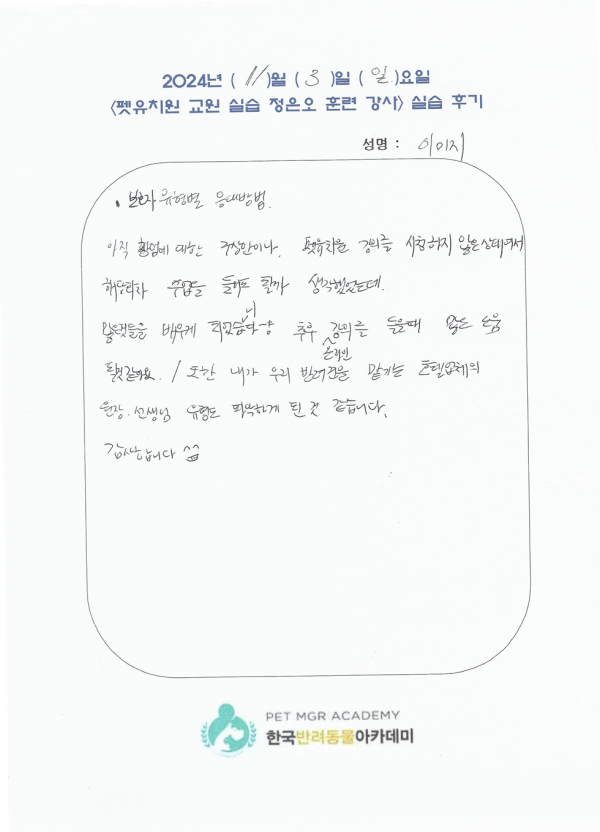 2024년 ( 11 )월 ( 3 )일 ( 일 )요일
<펫유치원 교원 실습 정은오 훈련 강사> 실습 후기
성명 : 이미지
• 보호자 유형별 응대방법.
아직 창업에 대한 구상안이나, 펫유치원 강의를 시청하지 않은 상태여서
해당되는 수업을 들어도 될까 생각했었는데.
많은것들을 배우게 되었습니다 추후 온라인 강의를 들을때 많은 도움
될것같아요. / 또한 내가 우리 반려견을 맡기는 호텔업체의
원장.선생님 유형도 파악하게 된 것 같습니다.
감사합니다 ^^
PET MGR ACADEMY
한국반려동물아카데미